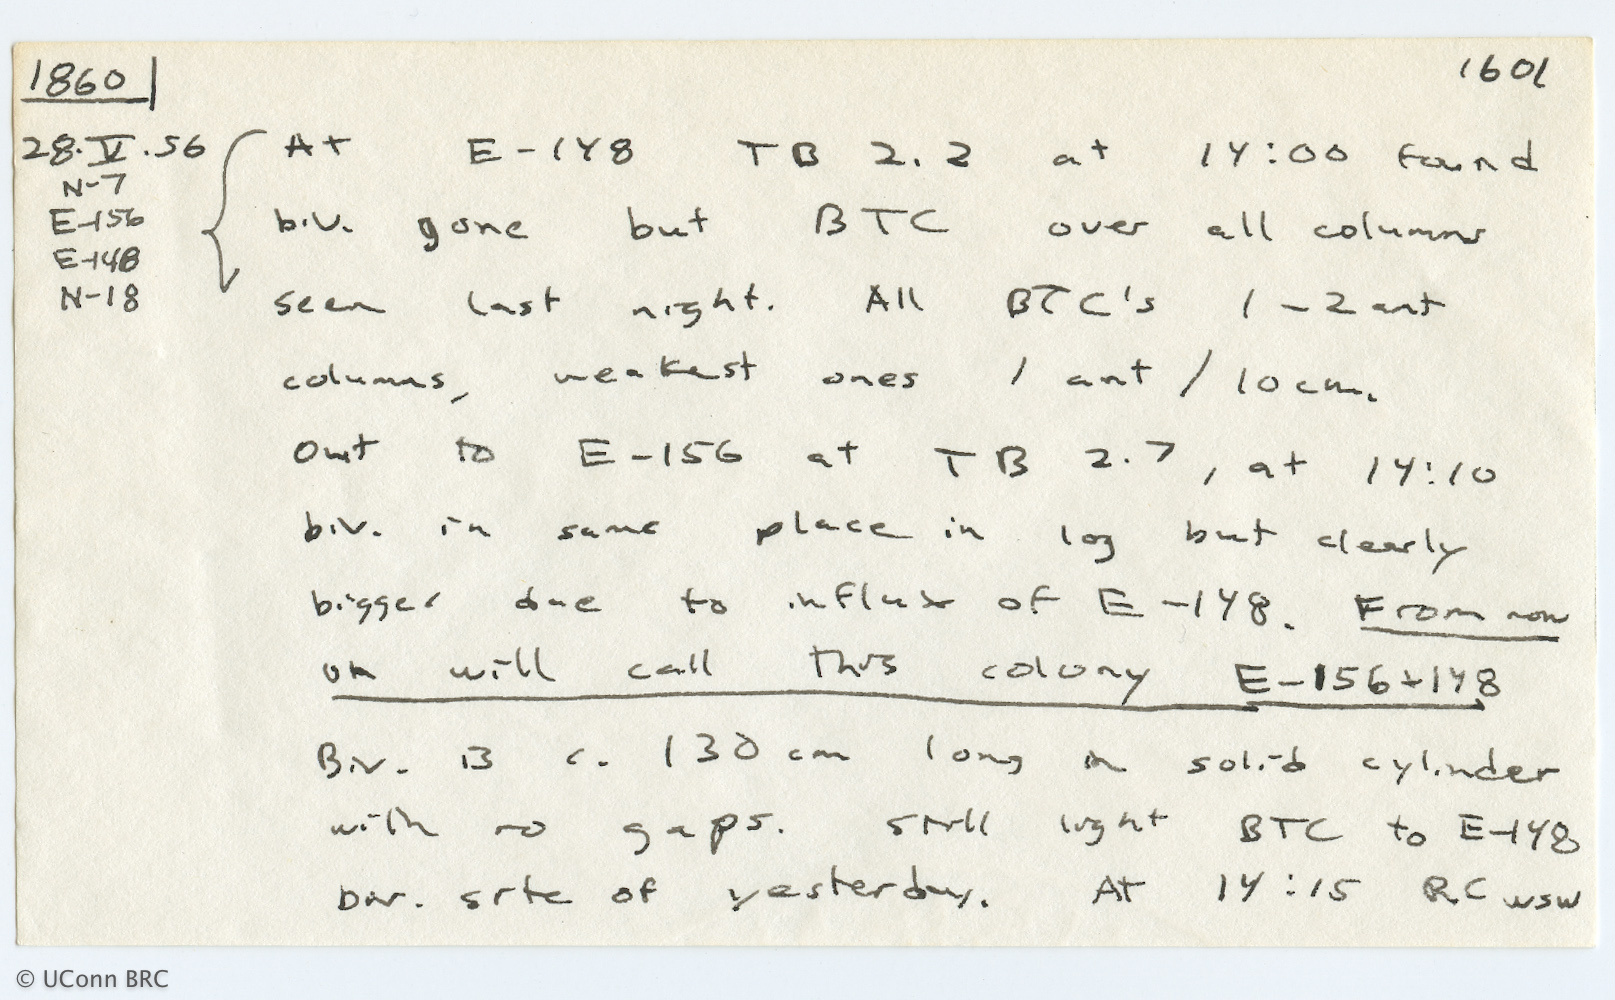 1860
1601
28.V.56
N-7
E-156
E-148
N-18
At E-148 TB 2.2 at 14:00 found
biv. gone but BTC over all columns
seen last night. All BTC's 1-2 ant
columns, weakest ones 1 ant / 10 cm.
Out to E-156 at TB 2.7, at 14:10
biv. in same place in log but clearly
bigger due to influx of E-148. From now
on will call this colony E-156+148
Biv. is c. 130 cm long in solid cylinder
with no gaps. Still light BTC to E-148
biv. site of yesterday. At 14:15 RC WSW
© UConn BRC